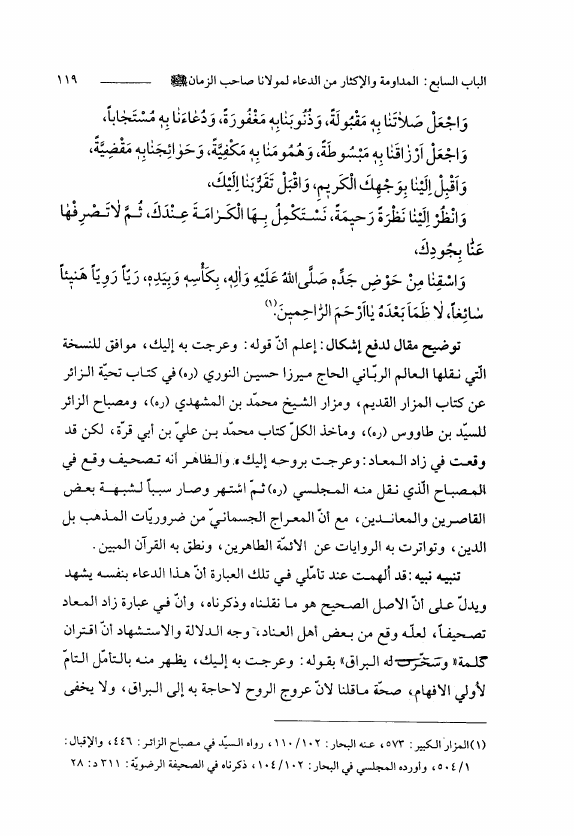 الباب السابع: المداومة والإكثار من الدعاء لمولانا صاحب الزمان ١١٩
وَاجْعَلْ صَلاٰتَنٰا بِهِ مَقْبُولَةً، وَذُنُوبَنٰابِهِ مَغْفُورَةً، وَدُعٰاءَنٰا بِهِ مُسْتَجٰاباً،
وَاجْعَلْ اَرْزٰاقَنٰا بِهِ مَبْسُوطَةً، وَهُمُومَنٰا بِهِ مَكْفِيَّةً، وَحَوٰائِجَنٰابِهِ مَقْضِيَّةً،
وَاَقْبِلْ اِلَيْنٰا بِوَجْهِكَ الْكَرِيمِ، وَاقْبَلْ تَقَرُّبَنٰا اِلَيْكَ،
وَانْظُرْ اِلَيْنٰا نَظْرَةً رَحِيمَةً، نَسْتَكْمِلُ بِهَا الْكَرٰامَةَ عِنْدَكَ، ثُمَّ لاٰتَصْرِفْهٰا
عَنّٰا بِجُودِكَ،
وَاسْقِنٰا مِنْ حَوْضِ جَدِّهِ صَلَّى اللهُ عَلَيْهِ وَاٰلِهِ، بِكَأْسِهِ وَبِيَدِهِ، رَيّاً رَوِيّاً هَنِيئاً
سٰائِغاً، لاٰ ظَمَاَ بَعْدَهُ يٰااَرْحَمَ الرّٰاحِمِينَ.(١)
توضيح مقال لدفع إشكال: إعلم أنّ قوله: وعرجت به إليك، موافق للنسخة
الّتي نقلها العالم الربّاني الحاج ميرزا حسين النوري (ره) في كتاب تحيّة الزائر
عن كتاب المزار القديم، ومزار الشيخ محمّد بن المشهدي (ره)، ومصباح الزائر
للسيّد بن طاووس (ره)، ومأخذ الكلّ كتاب محمّد بن عليّ بن أبي قرّة، لكن قد
وقعت في زاد المعاد: وعرجت بروحه إليك» والظاهر أنه تصحيف وقع في
المصباح الّذي نقل منه المجلسي (ره) ثمّ اشتهر وصار سبباً لشبهة بعض
القاصرين والمعاندين، مع أنّ المعراج الجسمانيّ من ضروريّات المذهب بل
الدين، وتواترت به الروايات عن الأئمّة الطاهرين، ونطق به القرآن المبين.
تنبيه نبيه: قد اُلهمت عند تأمّلي في تلك العبارة أنّ هذا الدعاء بنفسه يشهد
ويدلّ على أنّ الاصل الصحيح هو ما نقلناه وذكرناه، وأنّ في عبارة زاد المعاد
تصحيفاً، لعلّه وقع من بعض أهل العناد، وجه الدلالة والاستشهاد أنّ اقتران
كلمة «وسخّرت له البراق» بقوله: وعرجت به إليك، يظهر منه بالتأمّل التامّ
لاُولي الافهام، صحّة ماقلنا لانّ عروج الروح لاحاجة به إلى البراق، ولا يخفى
(١) المزار الكبير: ٥٧٣، عنه البحار: ١١٠/١٠٢، رواه السيّد في مصباح الزائر: ٤٤٦، والإقبال:
٥٠٤/١، وأورده المجلسي في البحار: ١٠٤/١٠٢، ذكرناه في الصحيفة الرضويّة: ٣١١ د: ٢٨